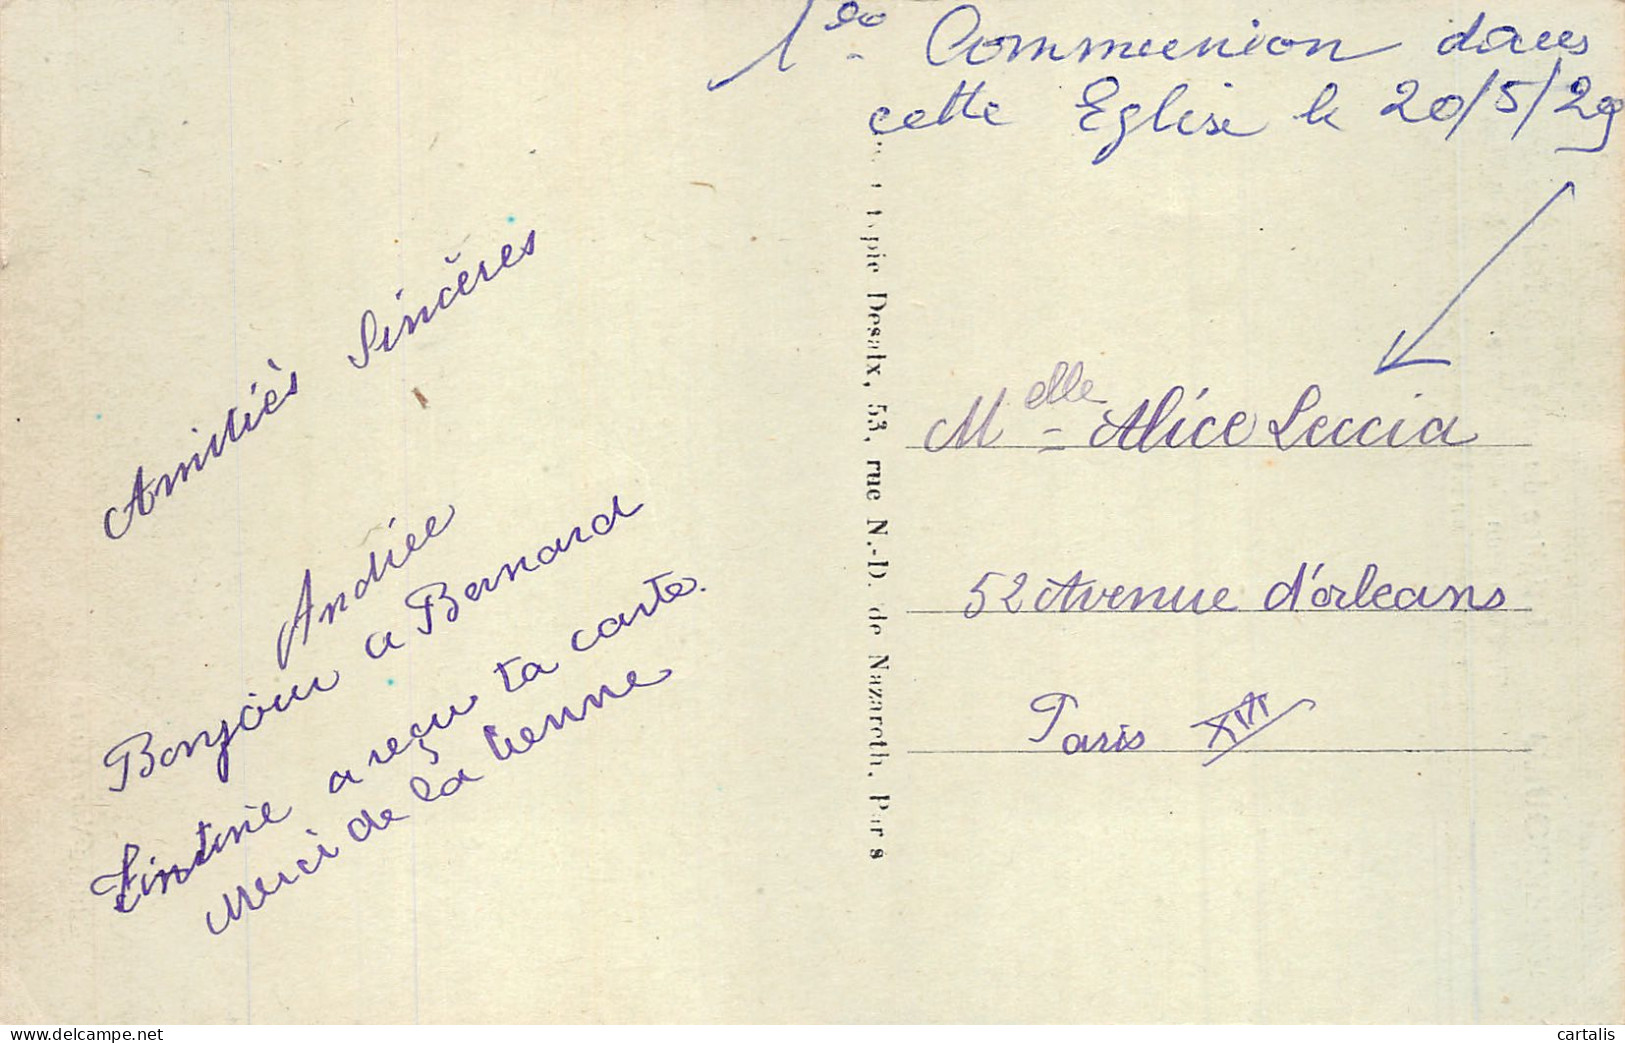 1re Communion dans
cette Eglise le 20/5/29
Amitiés Sincères
Andrée
Bonjour a Bernard
a reçu ta carte.
Merci de la tienne
typie Desaix, 53, rue N.-D. de Nazareth, Paris
Melle Alice Leccia
52 Avenue d'orleans
Paris
delcampe.net
cartalis